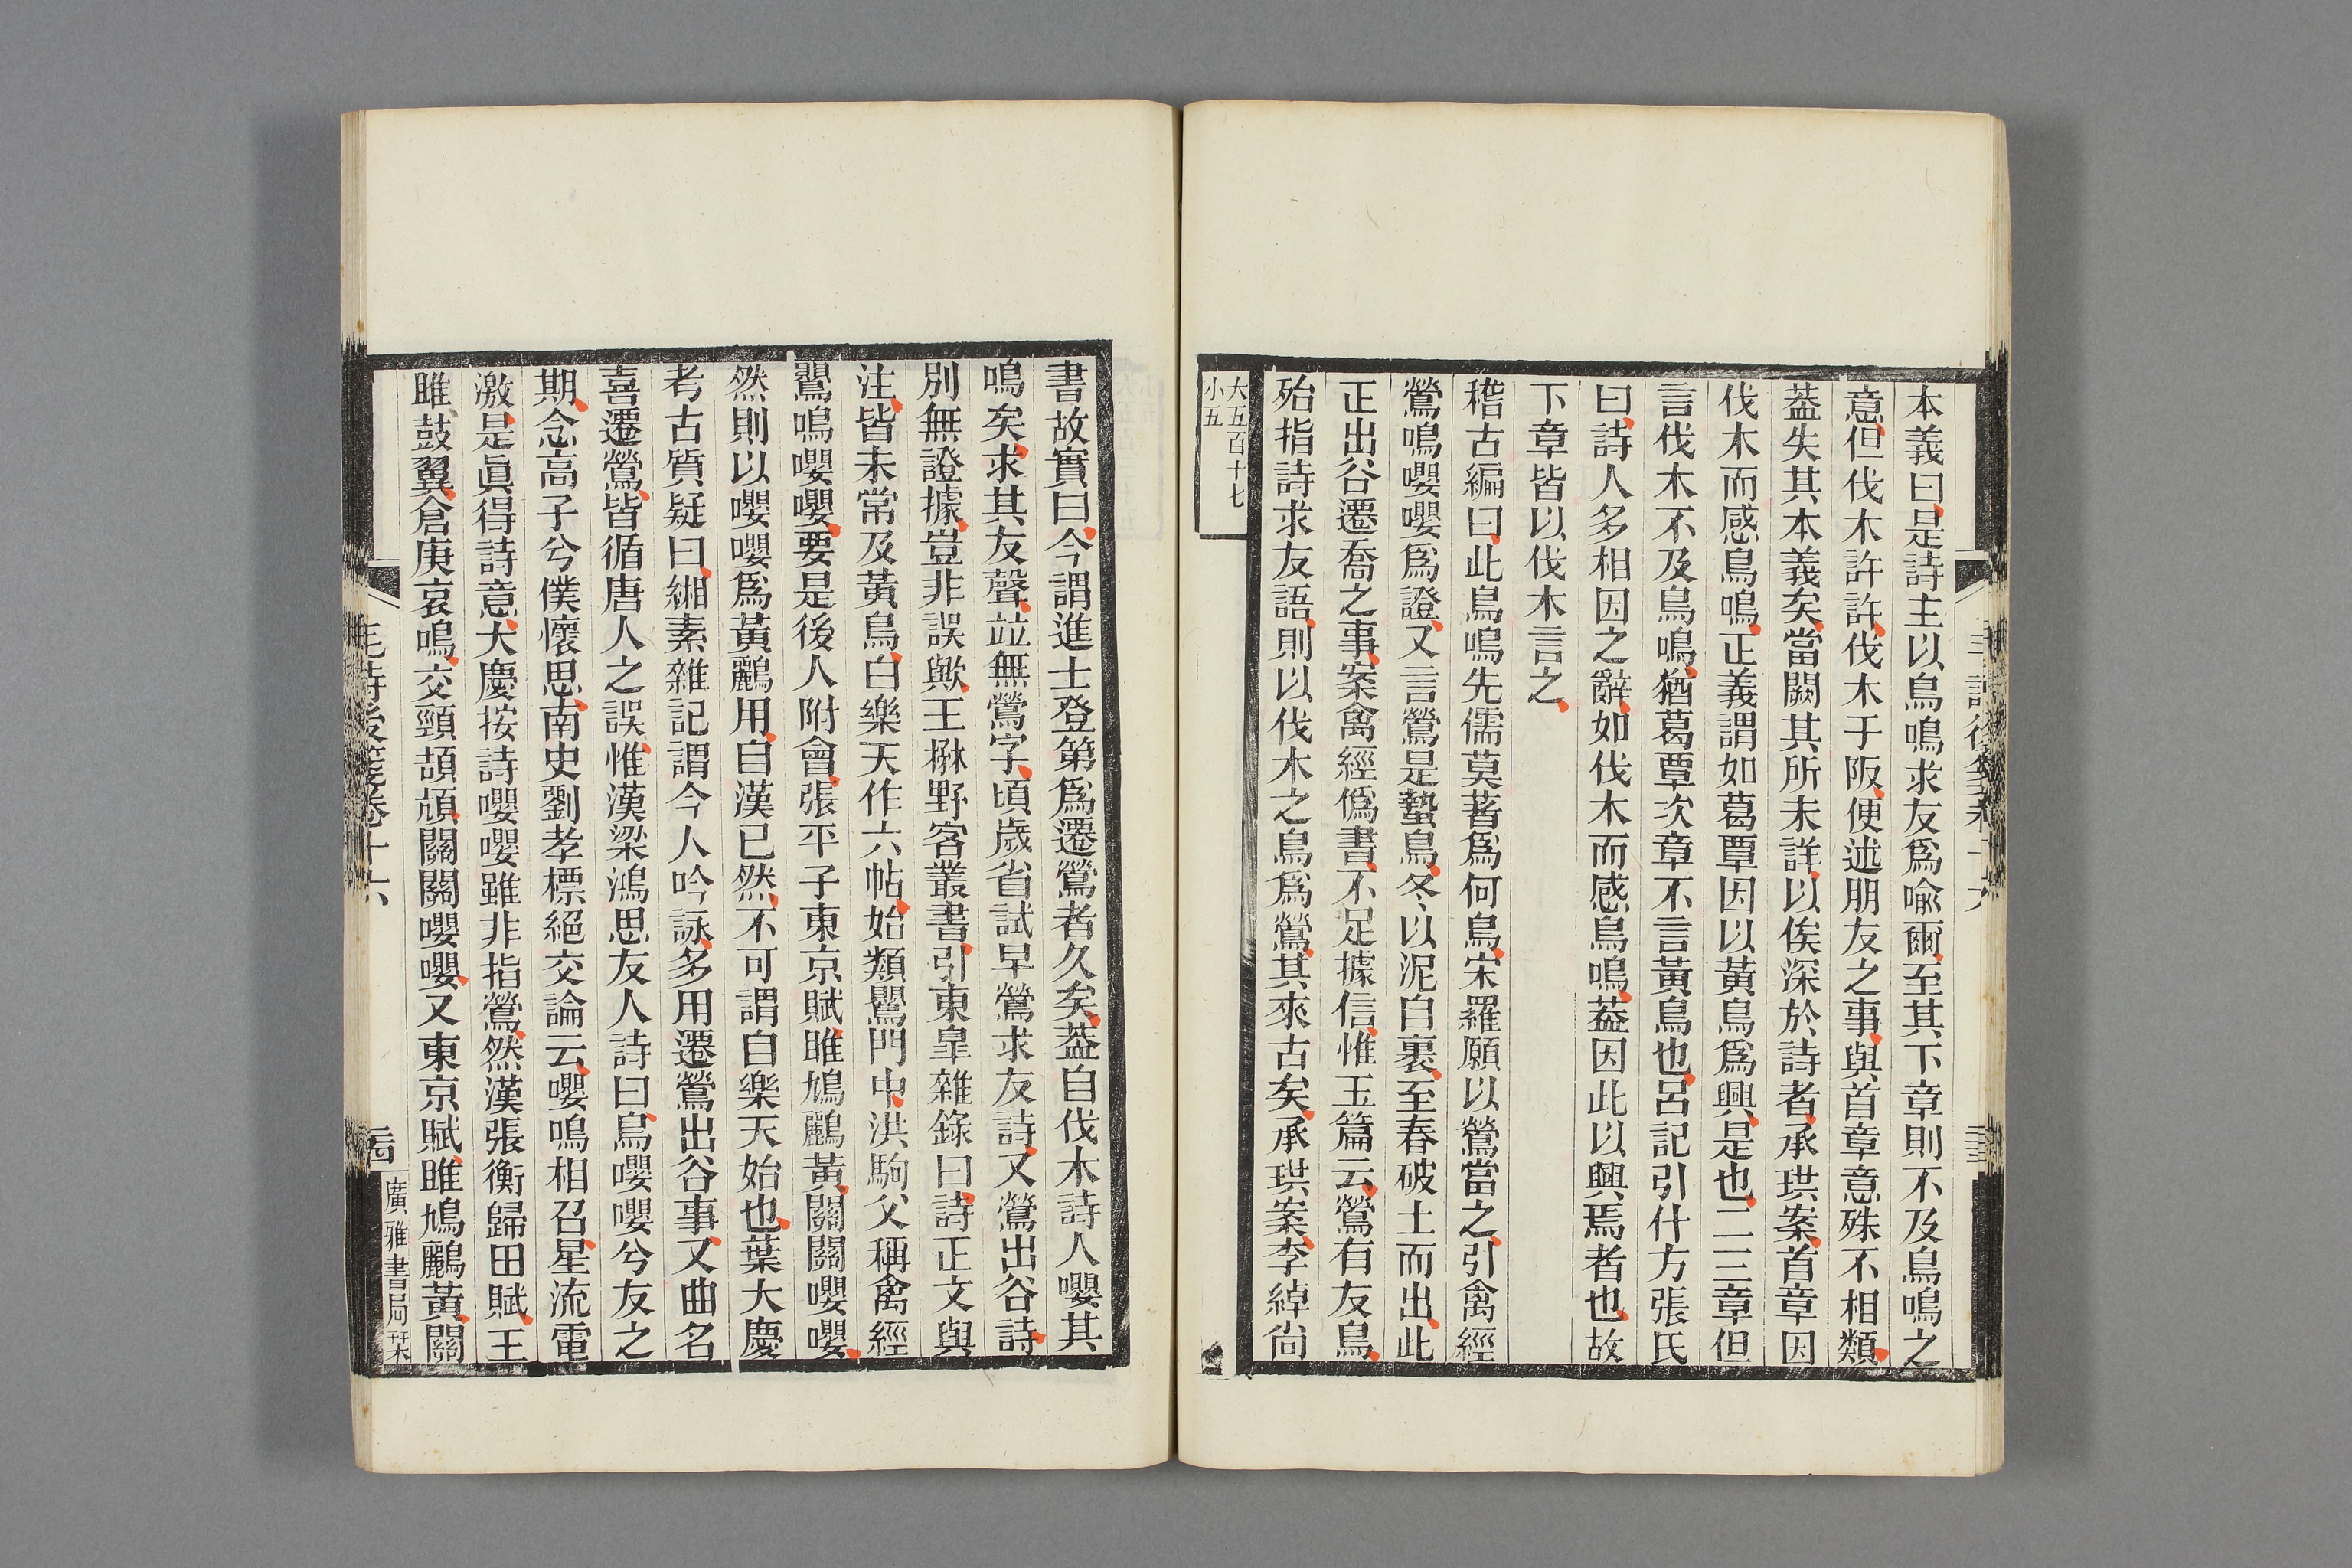 本義曰是詩主以鳥鳴求友爲喩爾至其下章則不及鳥鳴之
意但伐木許許伐木于阪便述朋友之事與首章意殊不相類
葢失其本義矣當闕其所未詳以俟深於詩者承珙案首章因
伐木而感鳥鳴正義謂如葛覃因以黃鳥爲興是也二三章但
言伐木不及鳥鳴猶葛覃次章不言黃鳥也呂記引什方張氏
曰詩人多相因之辭如伐木而感鳥鳴葢因此以興焉者也故
下章皆以伐木言之
稽古編曰此鳥鳴先儒莫著爲何鳥宋羅願以鶯當之引禽經
鶯鳴嚶嚶爲證又言鶯是蟄鳥冬以泥自裹至春破土而出此
正出谷遷喬之事案禽經僞書不足據信惟玉篇云鶯有友鳥
殆指詩求友語則以伐木之鳥爲鶯其來古矣承珙案李綽尙
大五百十七
小五
書故實曰今謂進士登第爲遷鶯者久矣葢自伐木詩人嚶其
鳴矣求其友聲竝無鶯字頃歲省試早鶯求友詩又鶯出谷詩
別無證據豈非誤歟王楙野客叢書引東臯雜錄曰詩正文與
注皆未常及黃鳥白樂天作六帖始類鸎門中洪駒父稱禽經
鸎鳴嚶嚶要是後人附會張平子東京賦雎鳩鸝黃關關嚶嚶
然則以嚶嚶爲黃鸝用自漢已然不可謂自樂天始也葉大慶
考古質疑曰緗素雜記謂今人吟詠多用遷鶯出谷事又曲名
喜遷鶯皆循唐人之誤惟漢梁鴻思友人詩曰鳥嚶嚶兮友之
期念高子兮僕懷思南史劉孝標絕交論云嚶鳴相召星流電
激是眞得詩意大慶按詩嚶嚶雖非指鶯然漢張衡歸田賦王
雎鼓翼倉庚哀鳴交頸頡頏關關嚶嚶又東京賦雎鳩鸝黃關
毛詩後箋卷十六
廣雅書局栞